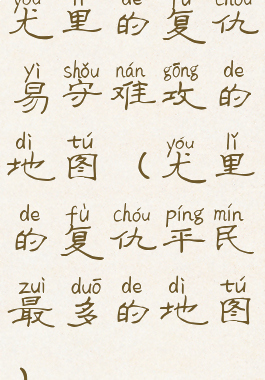 尤 里 的 复 仇
yì shǒu nán gōng de
易 守 难 攻 的
dì tú yóu lǐ
地 图 ( 尤 里
de fù chóu píng mín
的 复 仇 平 民
zuì duō de dì tú
最 多 的 地 图
)